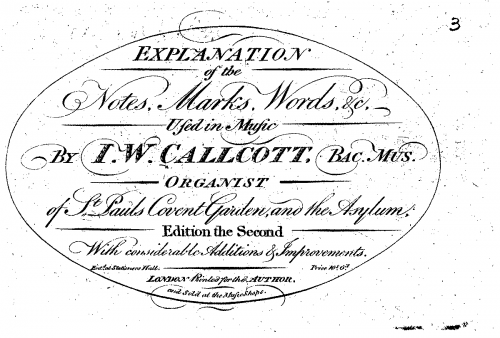 3
EXPLANATION
of the
Notes, Marks, Words, &c.
Used in Music
BY I. W. CALLCOTT, BAC. MUS.
ORGANIST
of St. Pauls Covent Garden, and the Asylum;
Edition the Second
With considerable Additions & Improvements.
Ent. at Stationers Hall. Price
LONDON Printed for the AUTHOR,
and Sold at the Music Shops.